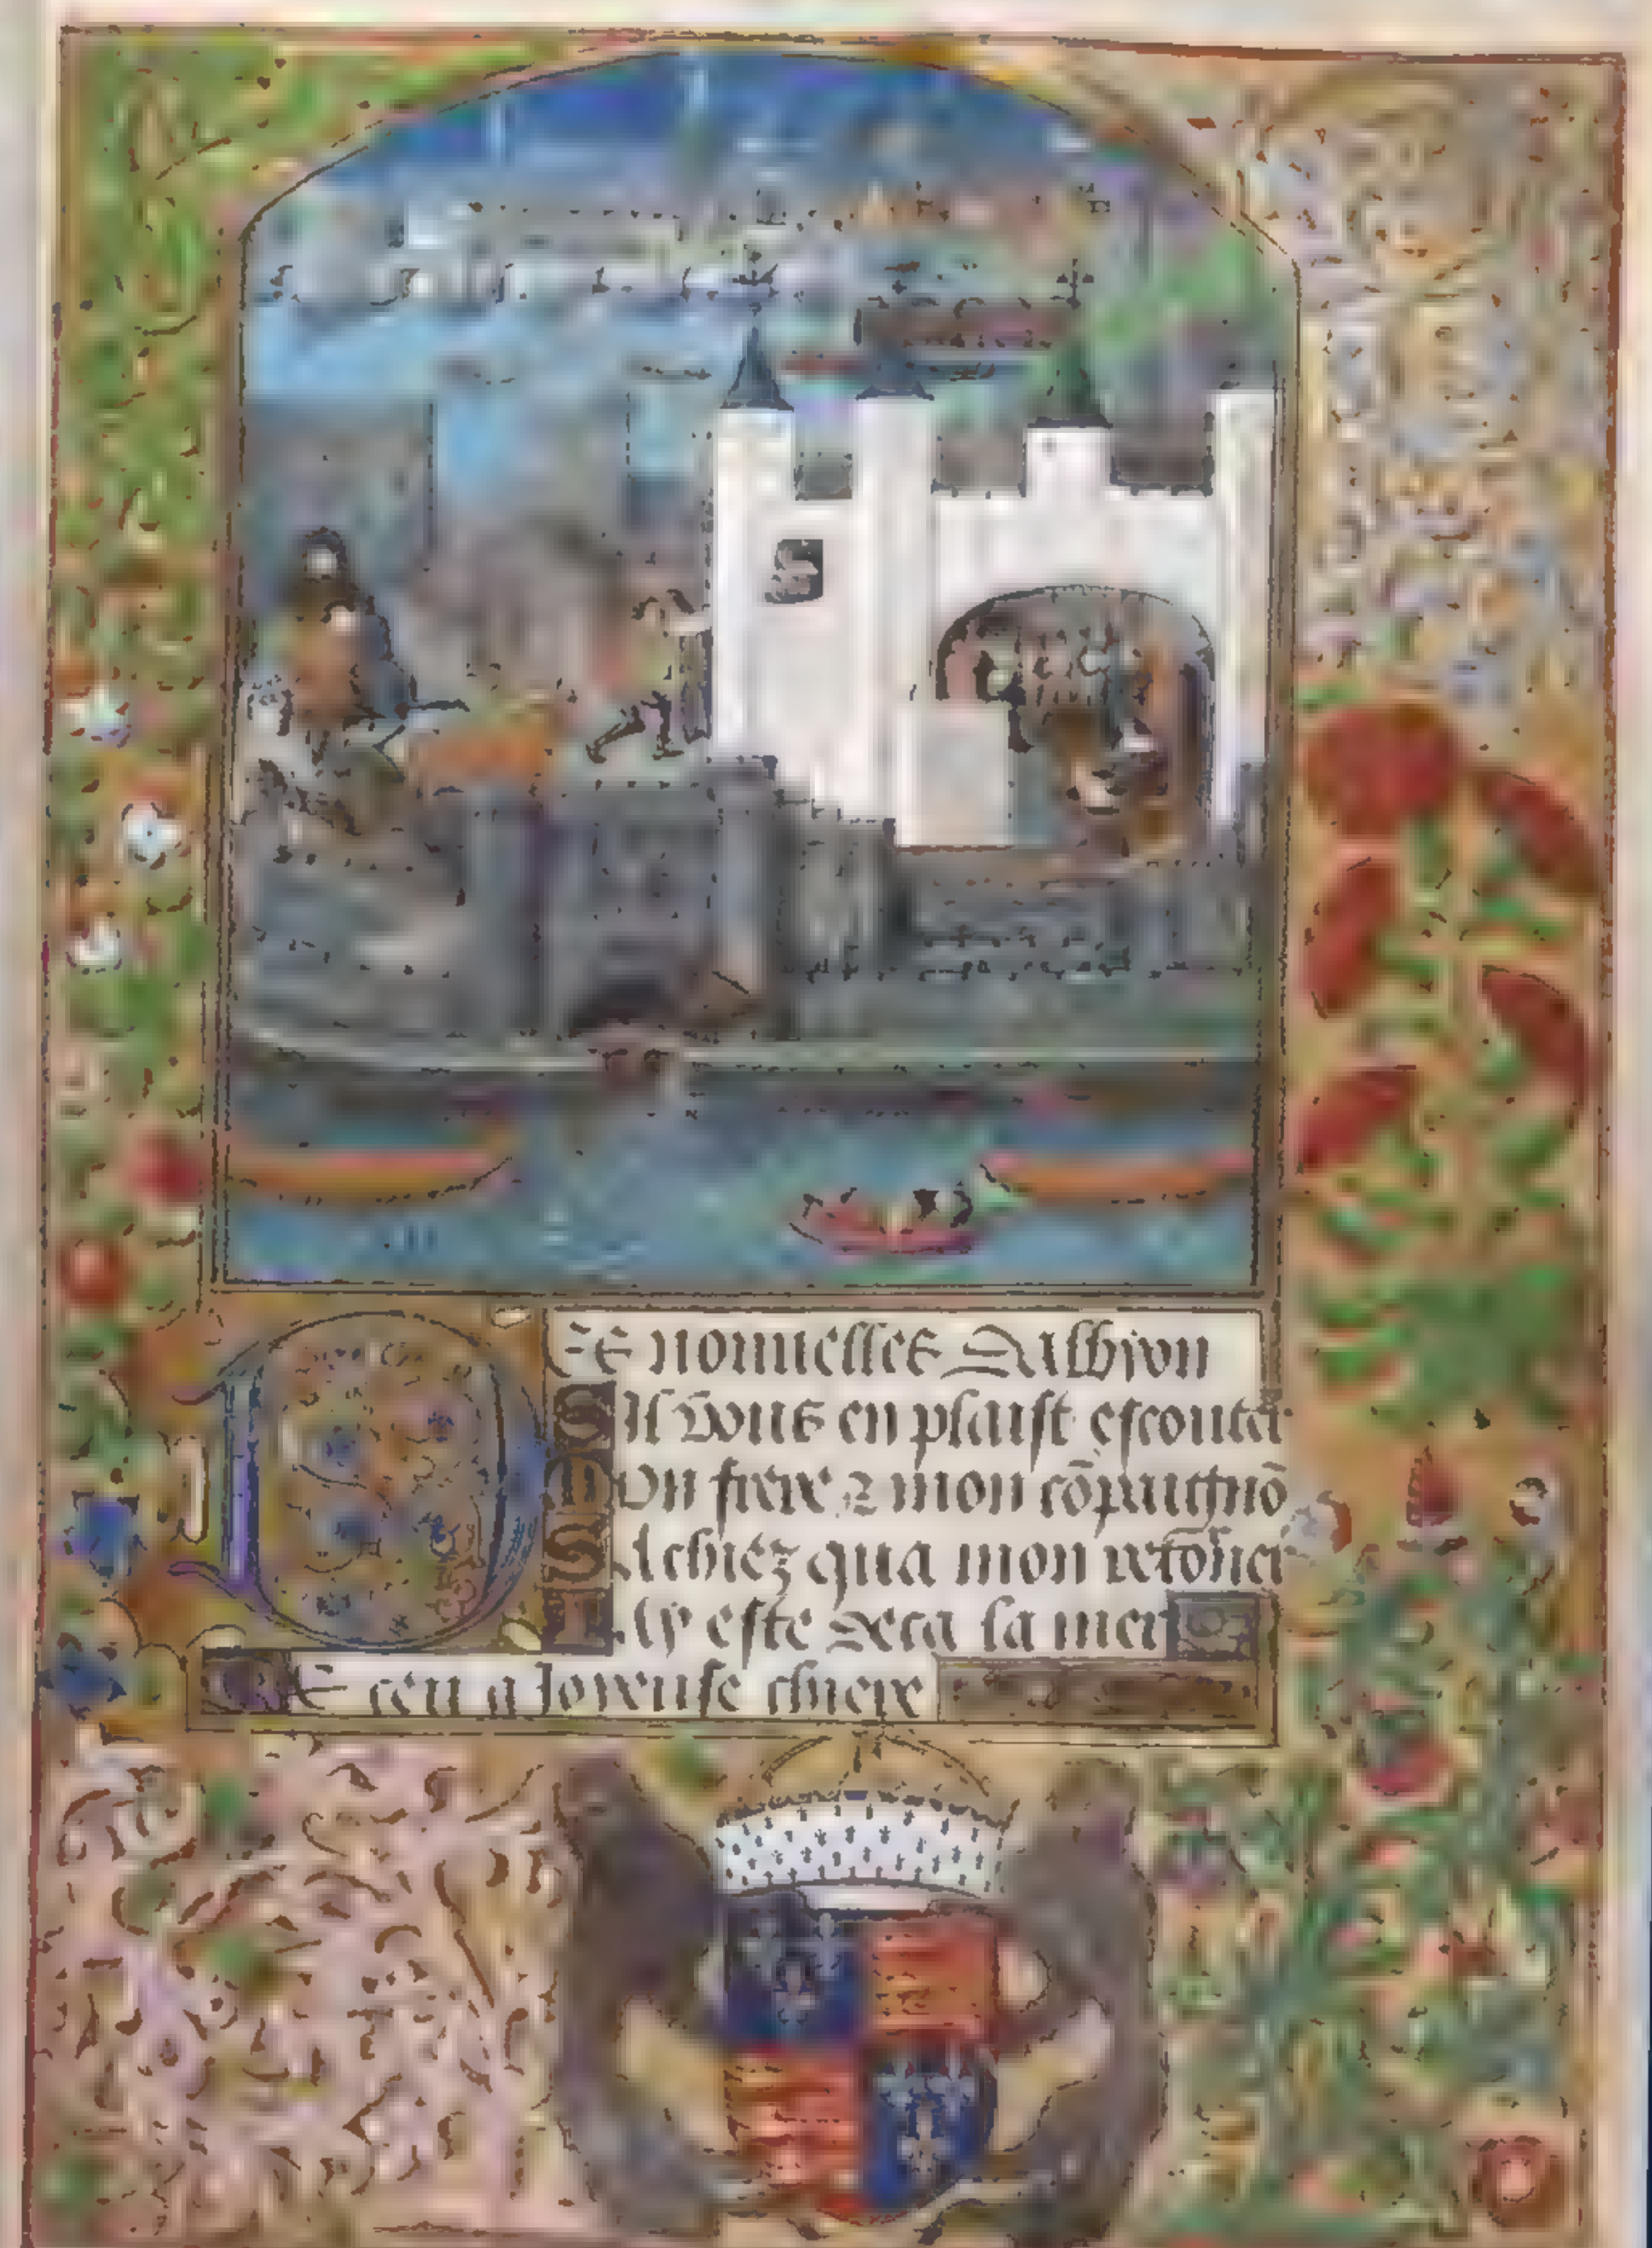 DEs nouuelles dalbyon
Sil vous en plaist escouter
Mon frere ⁊ mon cõpaignõ
Sachiez qua mon retõner
Iay este deca la mer
Receu a Joyeuse chiere